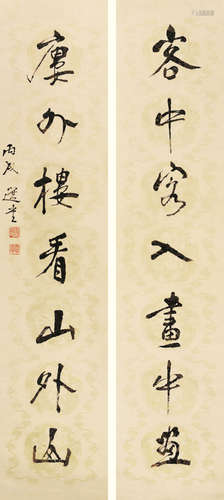 客中客入畫中畫
廔外樓看山外山
丙戌選堂